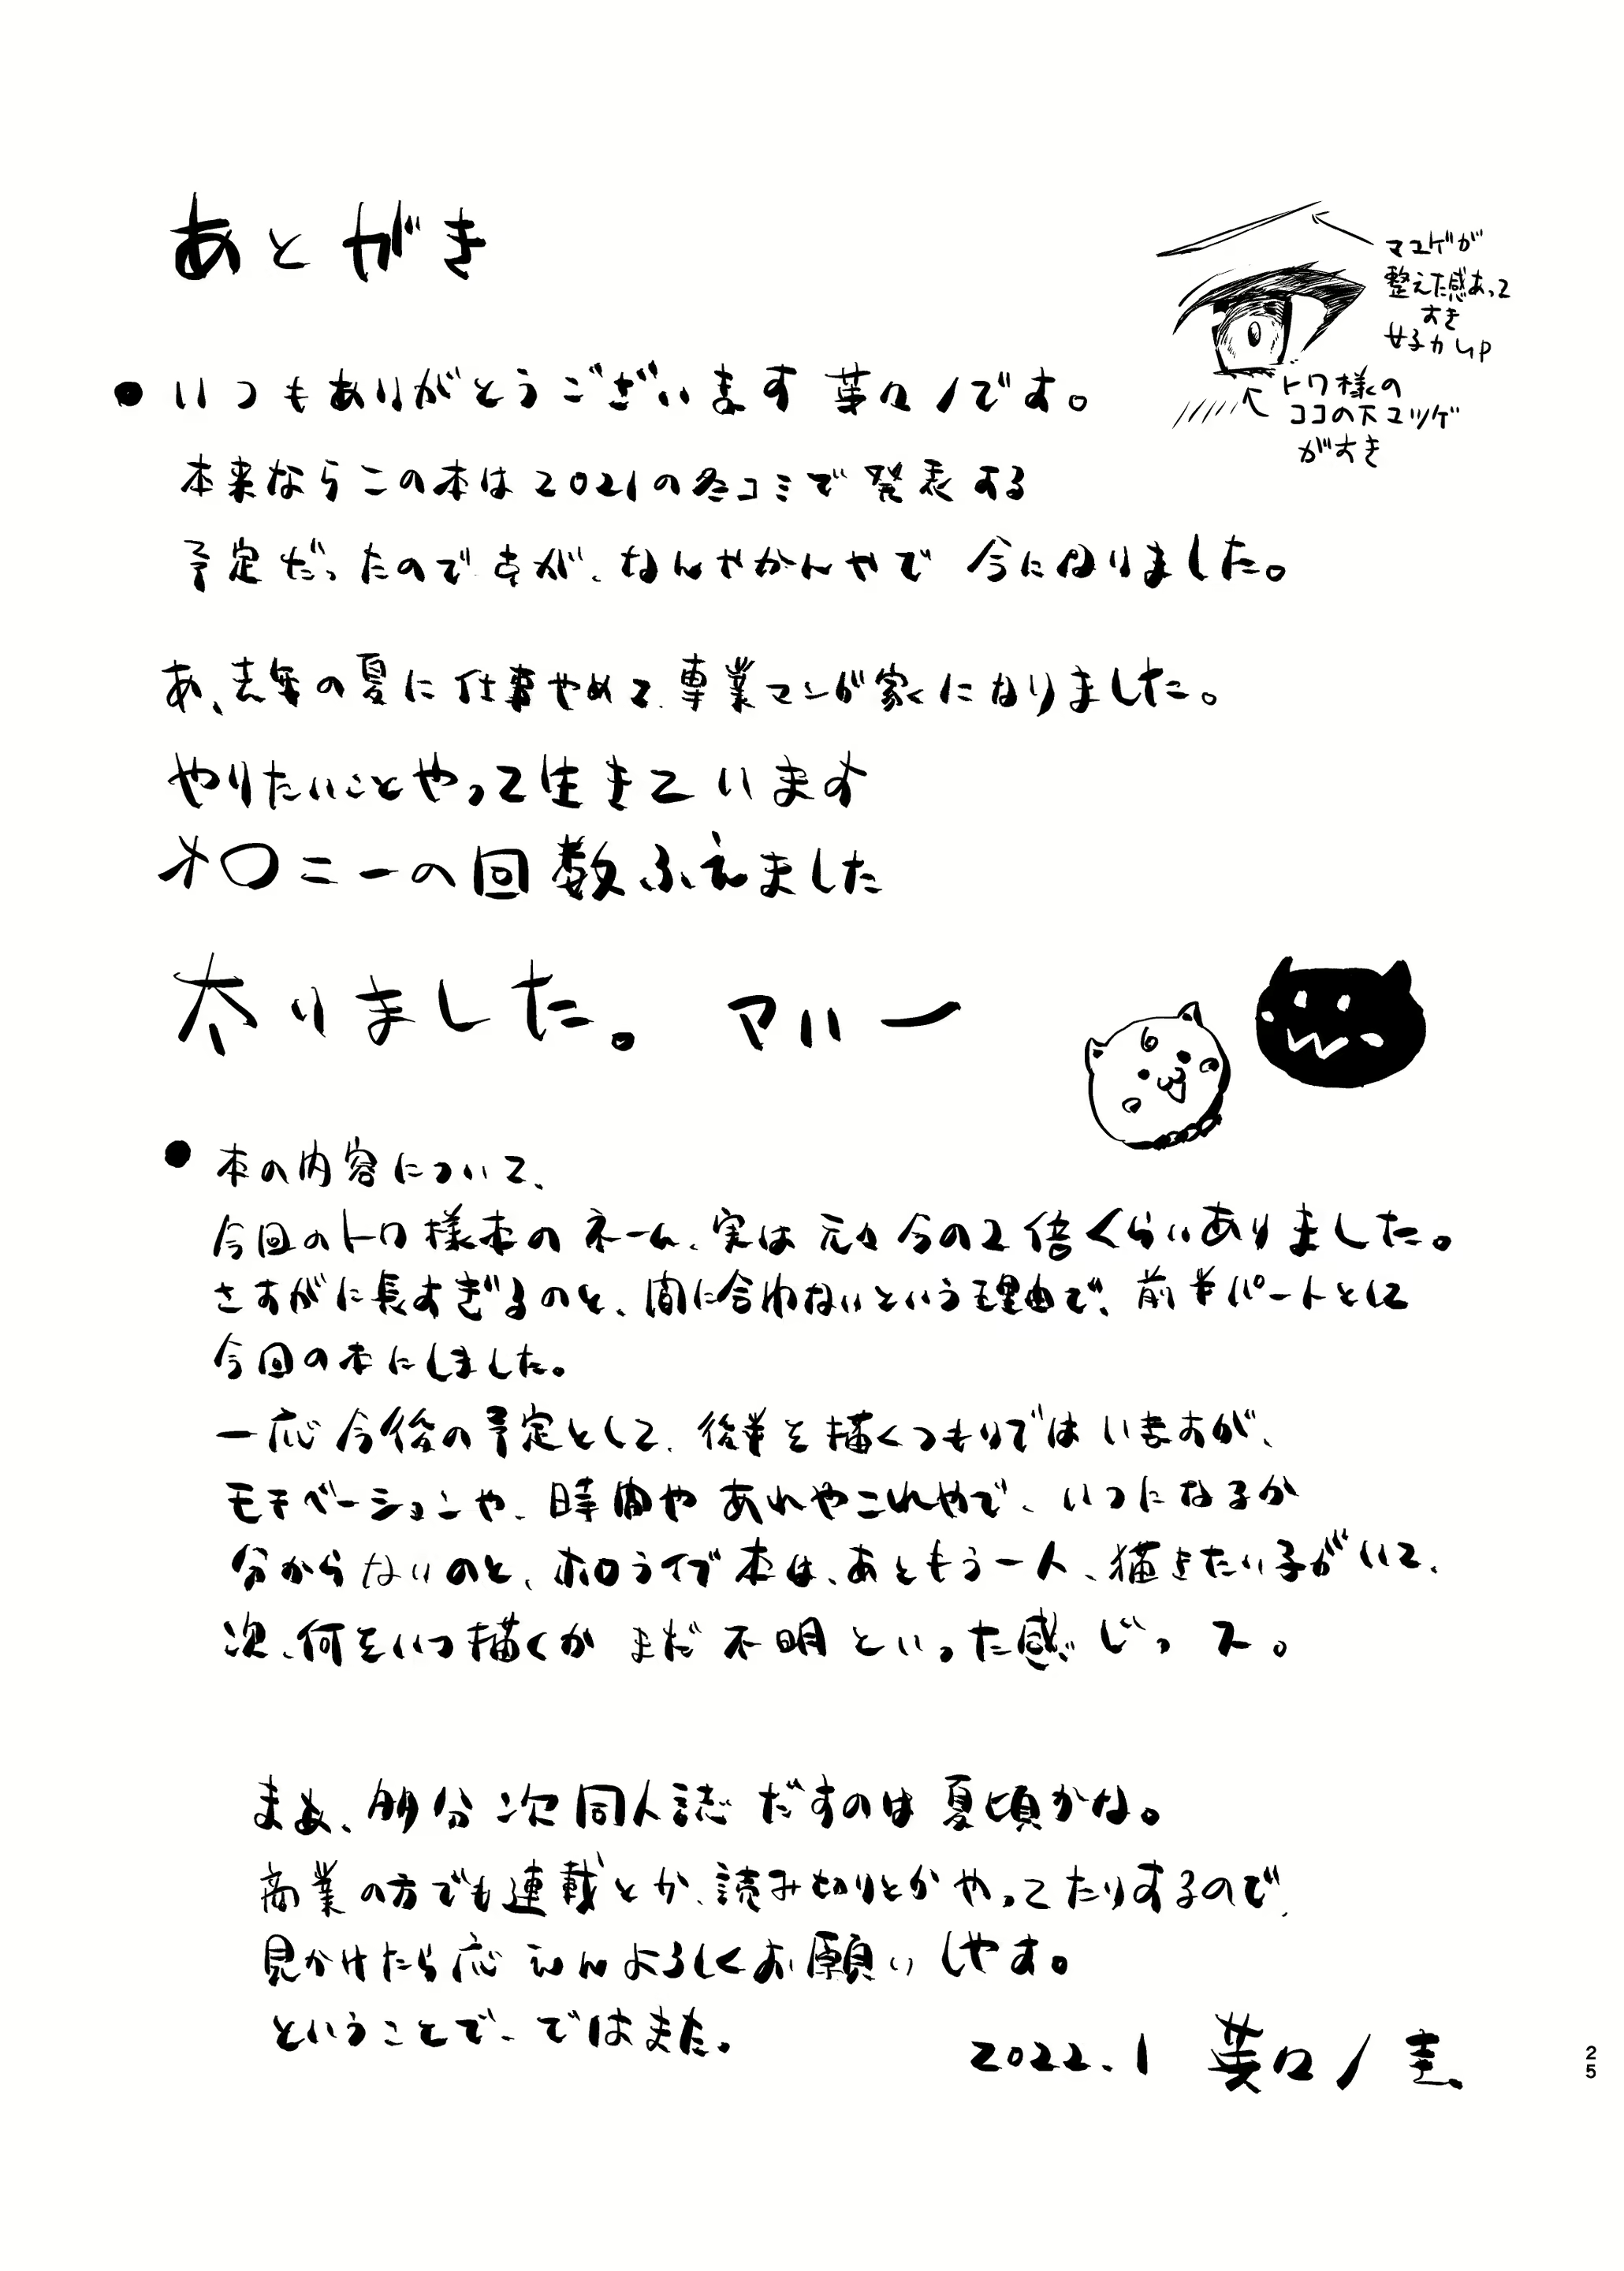 あとがき
マユゲが
整えた感あって
すき
女子力UP
トワ様の
ココの下マツゲ
がすき
● いつもありがとうございます 葉々ノです。
本来ならこの本は2021の冬コミで発表する
予定だったのですが、なんやかんやで 今になりました。
あ、去年の夏に仕事やめて、専業マンガ家になりました。
やりたいことやって生きています
オ〇ニーの回数ふえました
太りました。 マハー
● 本の内容について、
今回のトワ様本のネーム、実は元々今の2倍くらいありました。
さすがに長すぎるのと、間に合わないという理由で、前半パートとして
今回の本にしました。
一応今後の予定として、後半を描くつもりではいますが、
モチベーションや、時間やあれやこれやで、いつになるか
分からないのと、ホロライブ本は、あともう一人、描きたい子がいて、
次、何をいつ描くか まだ 不明 といった感じっス。
まぁ、多分次同人誌だすのは夏頃かな。
商業の方でも連載とか、読み切りとかやってたりするので、
見かけたら応えんよろしくお願いしやす。
ということで、ではまた。
2022.1 葉々ノ圭
25